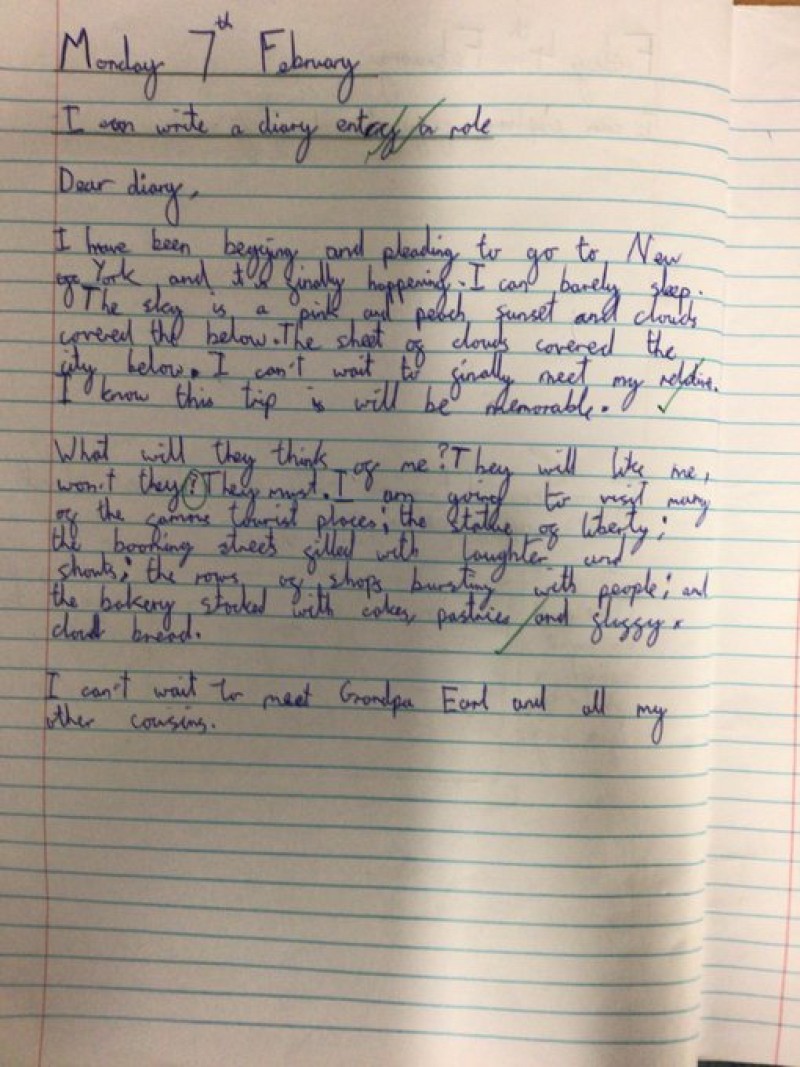 Monday 7th February
I can write a diary entry in role
Dear diary,
I have been begging and pleading to go to New
York and it's finally happening. I can barely sleep.
The sky is a pink and peach sunset and clouds
covered the below. The sheet of clouds covered the
city below. I can't wait to finally meet my relative.
I know this trip is will be memorable.
What will they think of me? They will like me,
won't they? They must. I am going to visit many
of the famous tourist places; the statue of liberty;
the booming streets filled with laughter and
shouts; the rows of shops bursting with people; and
the bakery stocked with cakes, pastries and fluffy
cloud bread.
I can't wait to meet Grandpa Earl and all my
other cousins.